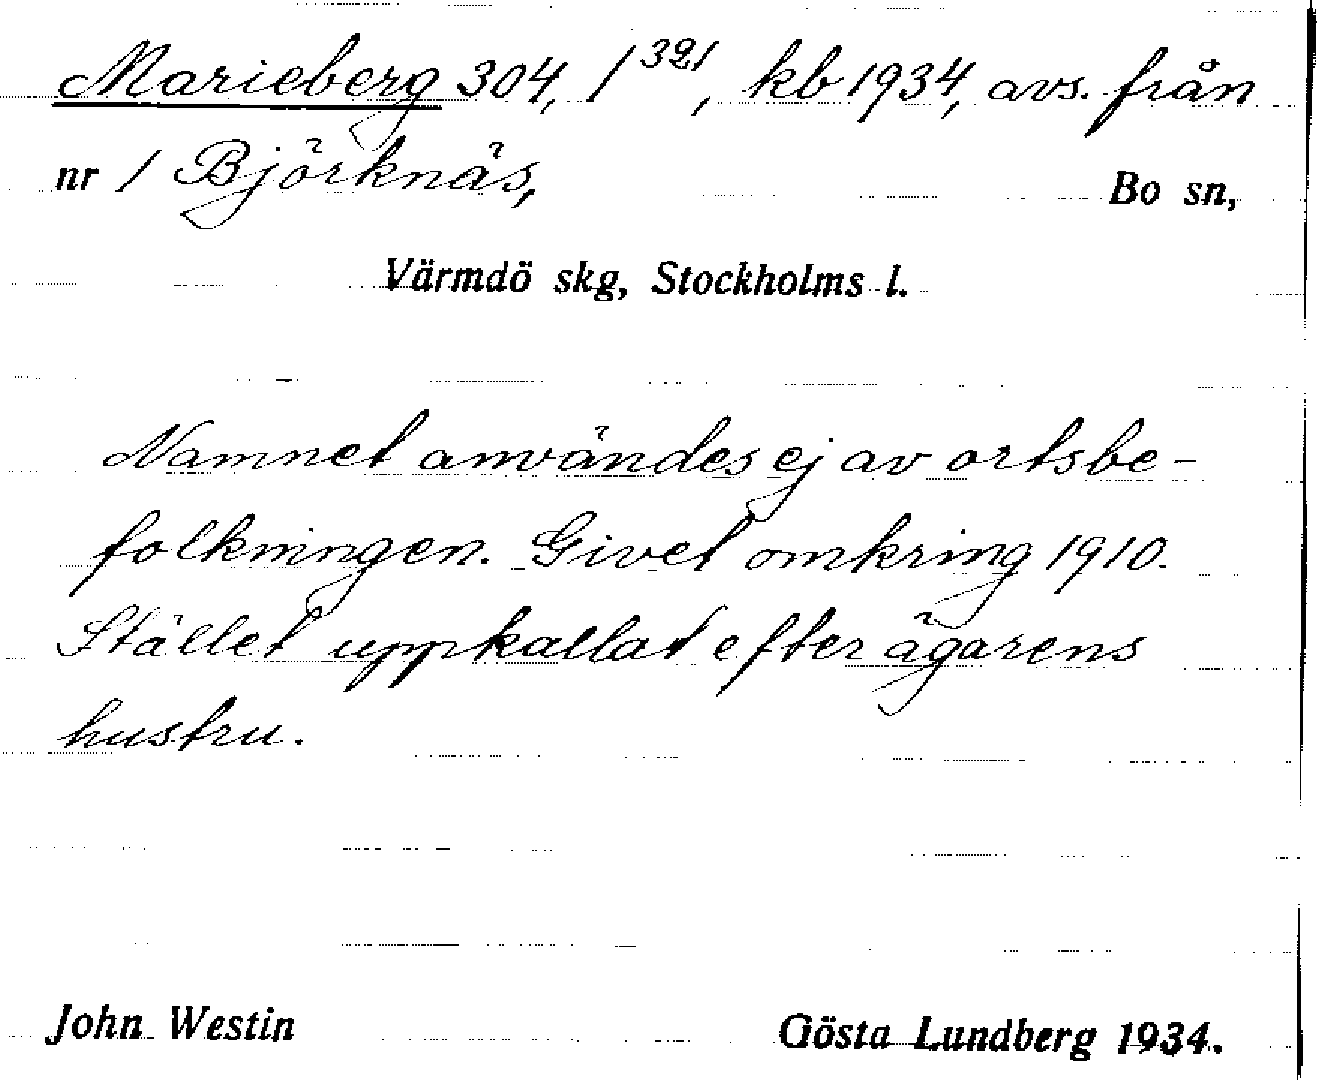 Marieberg 304, 1³²¹, kb 1934, avs. från
nr 1 Björknäs, Bo sn,
Värmdö skg, Stockholms l.
Namnet användes ej av ortsbe-
folkningen. Givet omkring 1910.
Stället uppkallat efter ägarens
hustru.
John Westin Gösta Lundberg 1934.